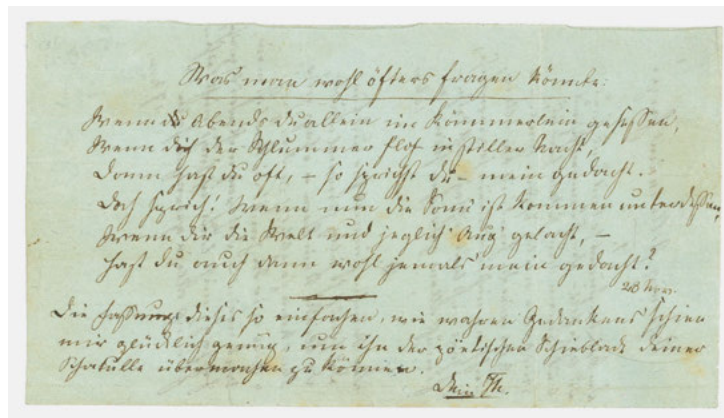 Was man wohl öfters fragen könnte:
Wenn Abends du allein im Kämmerlein gesessen,
Wenn dich der Schlummer floh in stiller Nacht,
Dann hast du oft, – so sprichst du – mein gedacht.
Doch sprich! Wenn nun die Sonn' ist kommen unterdessen,
Wenn dir die Welt und jeglich' Aug' gelacht, –
Hast du auch dann wohl jemals mein gedacht?
28 Nov.
Die Fassung dieses so einfachen, wie wahren Gedankens schien
mir glücklich genug, um ihn der poëtischen Schieblade deiner
Schatulle übermachen zu können.
Dein Th.